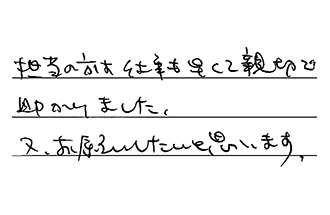 担当の方は仕事も早くて親切で
助かりました。
又、お願いしたいと思います。